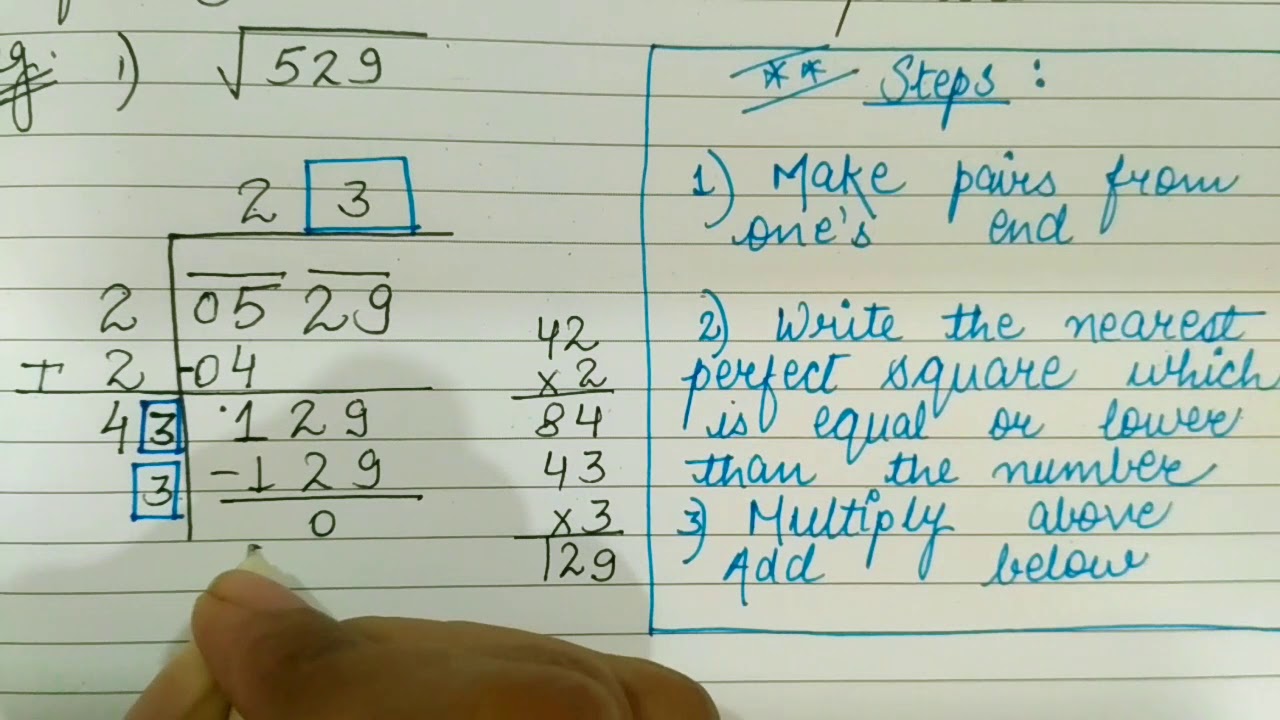 1) √529
2 3
2 05 29
+ 2 -04
4 3 129
3 -129
0
42
×2
84
43
×3
129
** Steps :
1) Make pairs from
one's end
2) Write the nearest
perfect square which
is equal or lower
than the number
3) Multiply above
Add below